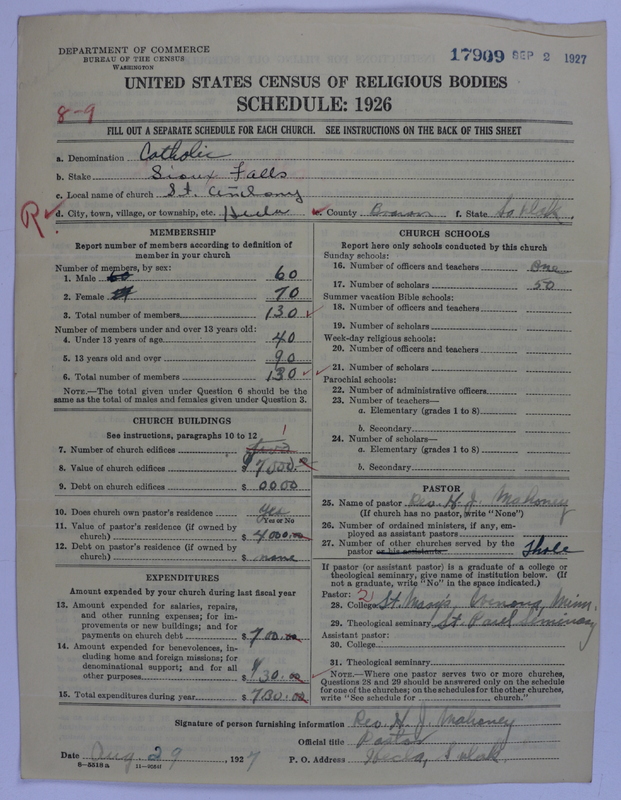 DEPARTMENT OF COMMERCE
BUREAU OF THE CENSUS
WASHINGTON
17909 SEP 2 1927
UNITED STATES CENSUS OF RELIGIOUS BODIES
SCHEDULE: 1926
8-9
FILL OUT A SEPARATE SCHEDULE FOR EACH CHURCH. SEE INSTRUCTIONS ON THE BACK OF THIS SHEET
a. Denomination Catholic
b. Stake Sioux Falls
c. Local name of church St. Anthony
R d. City, town, village, or township, etc. Hecla e. County Brown f. State So. Dak.
MEMBERSHIP
Report number of members according to definition of
member in your church
Number of members, by sex:
1. Male 60 60
2. Female 70
3. Total number of members 130
Number of members under and over 13 years old:
4. Under 13 years of age 40
5. 13 years old and over 90
6. Total number of members 130
NOTE.—The total given under Question 6 should be
same as the total of males and females given under Question 3.
CHURCH BUILDINGS
See instructions, paragraphs 10 to 12
7. Number of church edifices 1
8. Value of church edifices $ 7000.00
9. Debt on church edifices $ 0000
10. Does church own pastor's residence Yes
Yes or No
11. Value of pastor's residence (if owned by
church) $ 4000.00
12. Debt on pastor's residence (if owned by
church) $ none
EXPENDITURES
Amount expended by your church during last fiscal year
13. Amount expended for salaries, repairs,
and other running expenses; for im-
provements or new buildings; and for
payments on church debt $ 700.00
14. Amount expended for benevolences, in-
cluding home and foreign missions; for
denominational support; and for all
other purposes $ 30.00
15. Total expenditures during year $ 730.00
CHURCH SCHOOLS
Report here only schools conducted by this church
Sunday schools:
16. Number of officers and teachers One
17. Number of scholars 50
Summer vacation Bible schools:
18. Number of officers and teachers
19. Number of scholars
Week-day religious schools:
20. Number of officers and teachers
21. Number of scholars
Parochial schools:
22. Number of administrative officers
23. Number of teachers—
a. Elementary (grades 1 to 8)
b. Secondary
24. Number of scholars—
a. Elementary (grades 1 to 8)
b. Secondary
PASTOR
25. Name of pastor Rev. H. J. Mahoney
(If church has no pastor, write "None")
26. Number of ordained ministers, if any, em-
ployed as assistant pastors
27. Number of other churches served by the
pastor or his assistants
If pastor (or assistant pastor) is a graduate of a college or
theological seminary, give name of institution below. (If
not a graduate, write "No" in the space indicated.)
Pastor: 2
28. College St. Mary's, Winona, Minn.
29. Theological seminary St. Paul Seminary
Assistant pastor:
30. College
31. Theological seminary
NOTE.—Where one pastor serves two or more churches,
Questions 28 and 29 should be answered only on the schedule
for one of the churches; on the schedules for the other churches,
write "See schedule for church."
Signature of person furnishing information Rev. H. J. Mahoney
Official title Pastor
Date Aug. 29, 1927 P. O. Address Hecla, S. Dak.
8-5518a 11-9554f